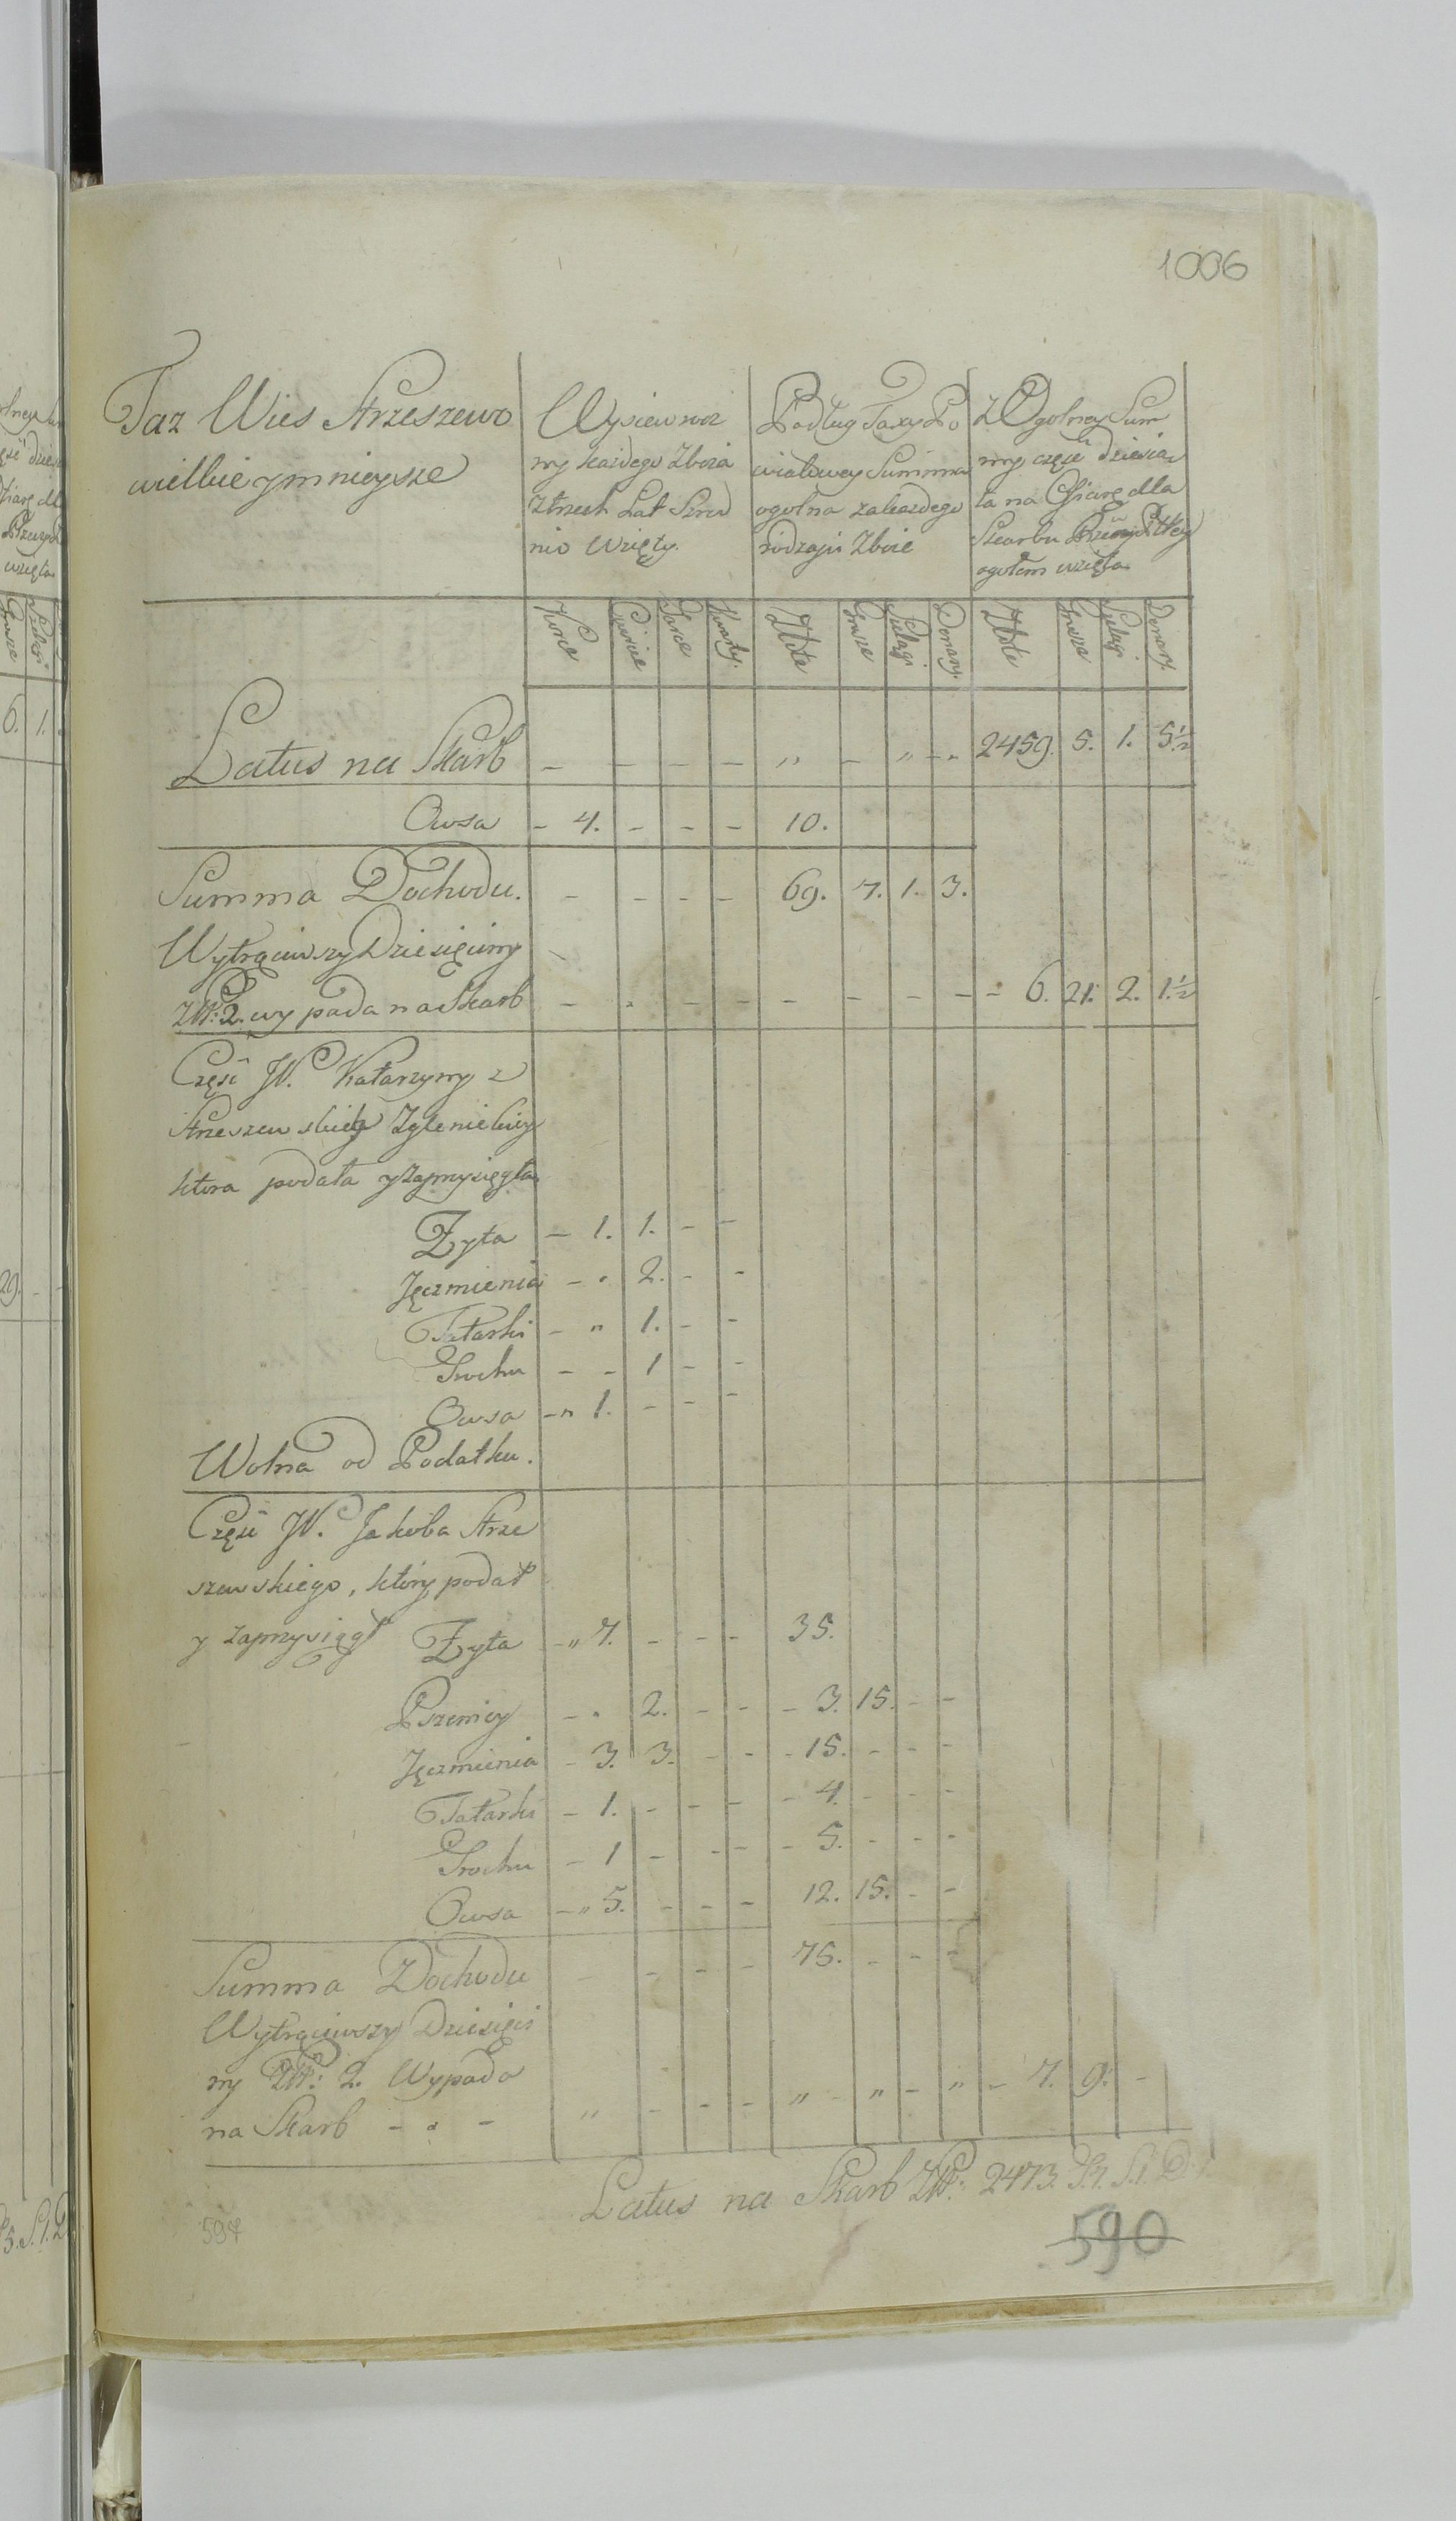 1006
Taz Wies Strzeszewo
wielkie y mnieysze
Wysiew roz
ny każdego Zboża
z trzech Lat Szrod
nio wzięty.
Podług Taxy Po
wiatowey Summa
ogolna za każdego
rodzaju Zboże
z Ogolney Sum
my częśc dziesią
ta na Ofiarę dla
Skarbu
ogołem wzięta
Korce Cwierci Garce Kwarty Złote Grosze Szelągi Denary Złote Grosze Szelągi Denary
Latus na Skarb - - - - „ - „ - „ 2459. 5. 1. 5½
Owsa - 4. - - - 10.
Summa Dochodu. - - - - 69. 7. 1. 3.
Wytrąciwszy Dziesięciny
ZłP: 2. wypada na Skarb - - - - - - - - - 6. 21. 2. 1½
Częśc JP. Katarzyny z
Strzeszewskich
ktora podała y zaprzysięgła
Zyta - 1. 1. - -
Jęczmienia - „ 2. - -
Tatarki - „ 1. - -
Grochu - - 1 - -
Owsa - „ 1. - - -
Wolna od Podatku.
Częśc JP. Jakoba Strze
szewskiego, ktory podał
y zaprzysiągł Zyta - „ 7. - - - 35.
Pszenicy - „ 2. - - - 3. 15. - -
Jęczmienia - 3. 3. - - - 15. - - -
Tatarki - 1. - - - - 4. - - -
Grochu - 1 - - - - 5. - - -
Owsa - „ 5. - - - 12. 15. - -
Summa Dochodu - - - - 75. - - -
Wytrąciwszy Dziesięci
ny ZłP: 2. Wypada
na Skarb - „ - „ - - - „ - „ - „ - 7. 9. -
Latus na Skarb ZłP: 2473.
597
590